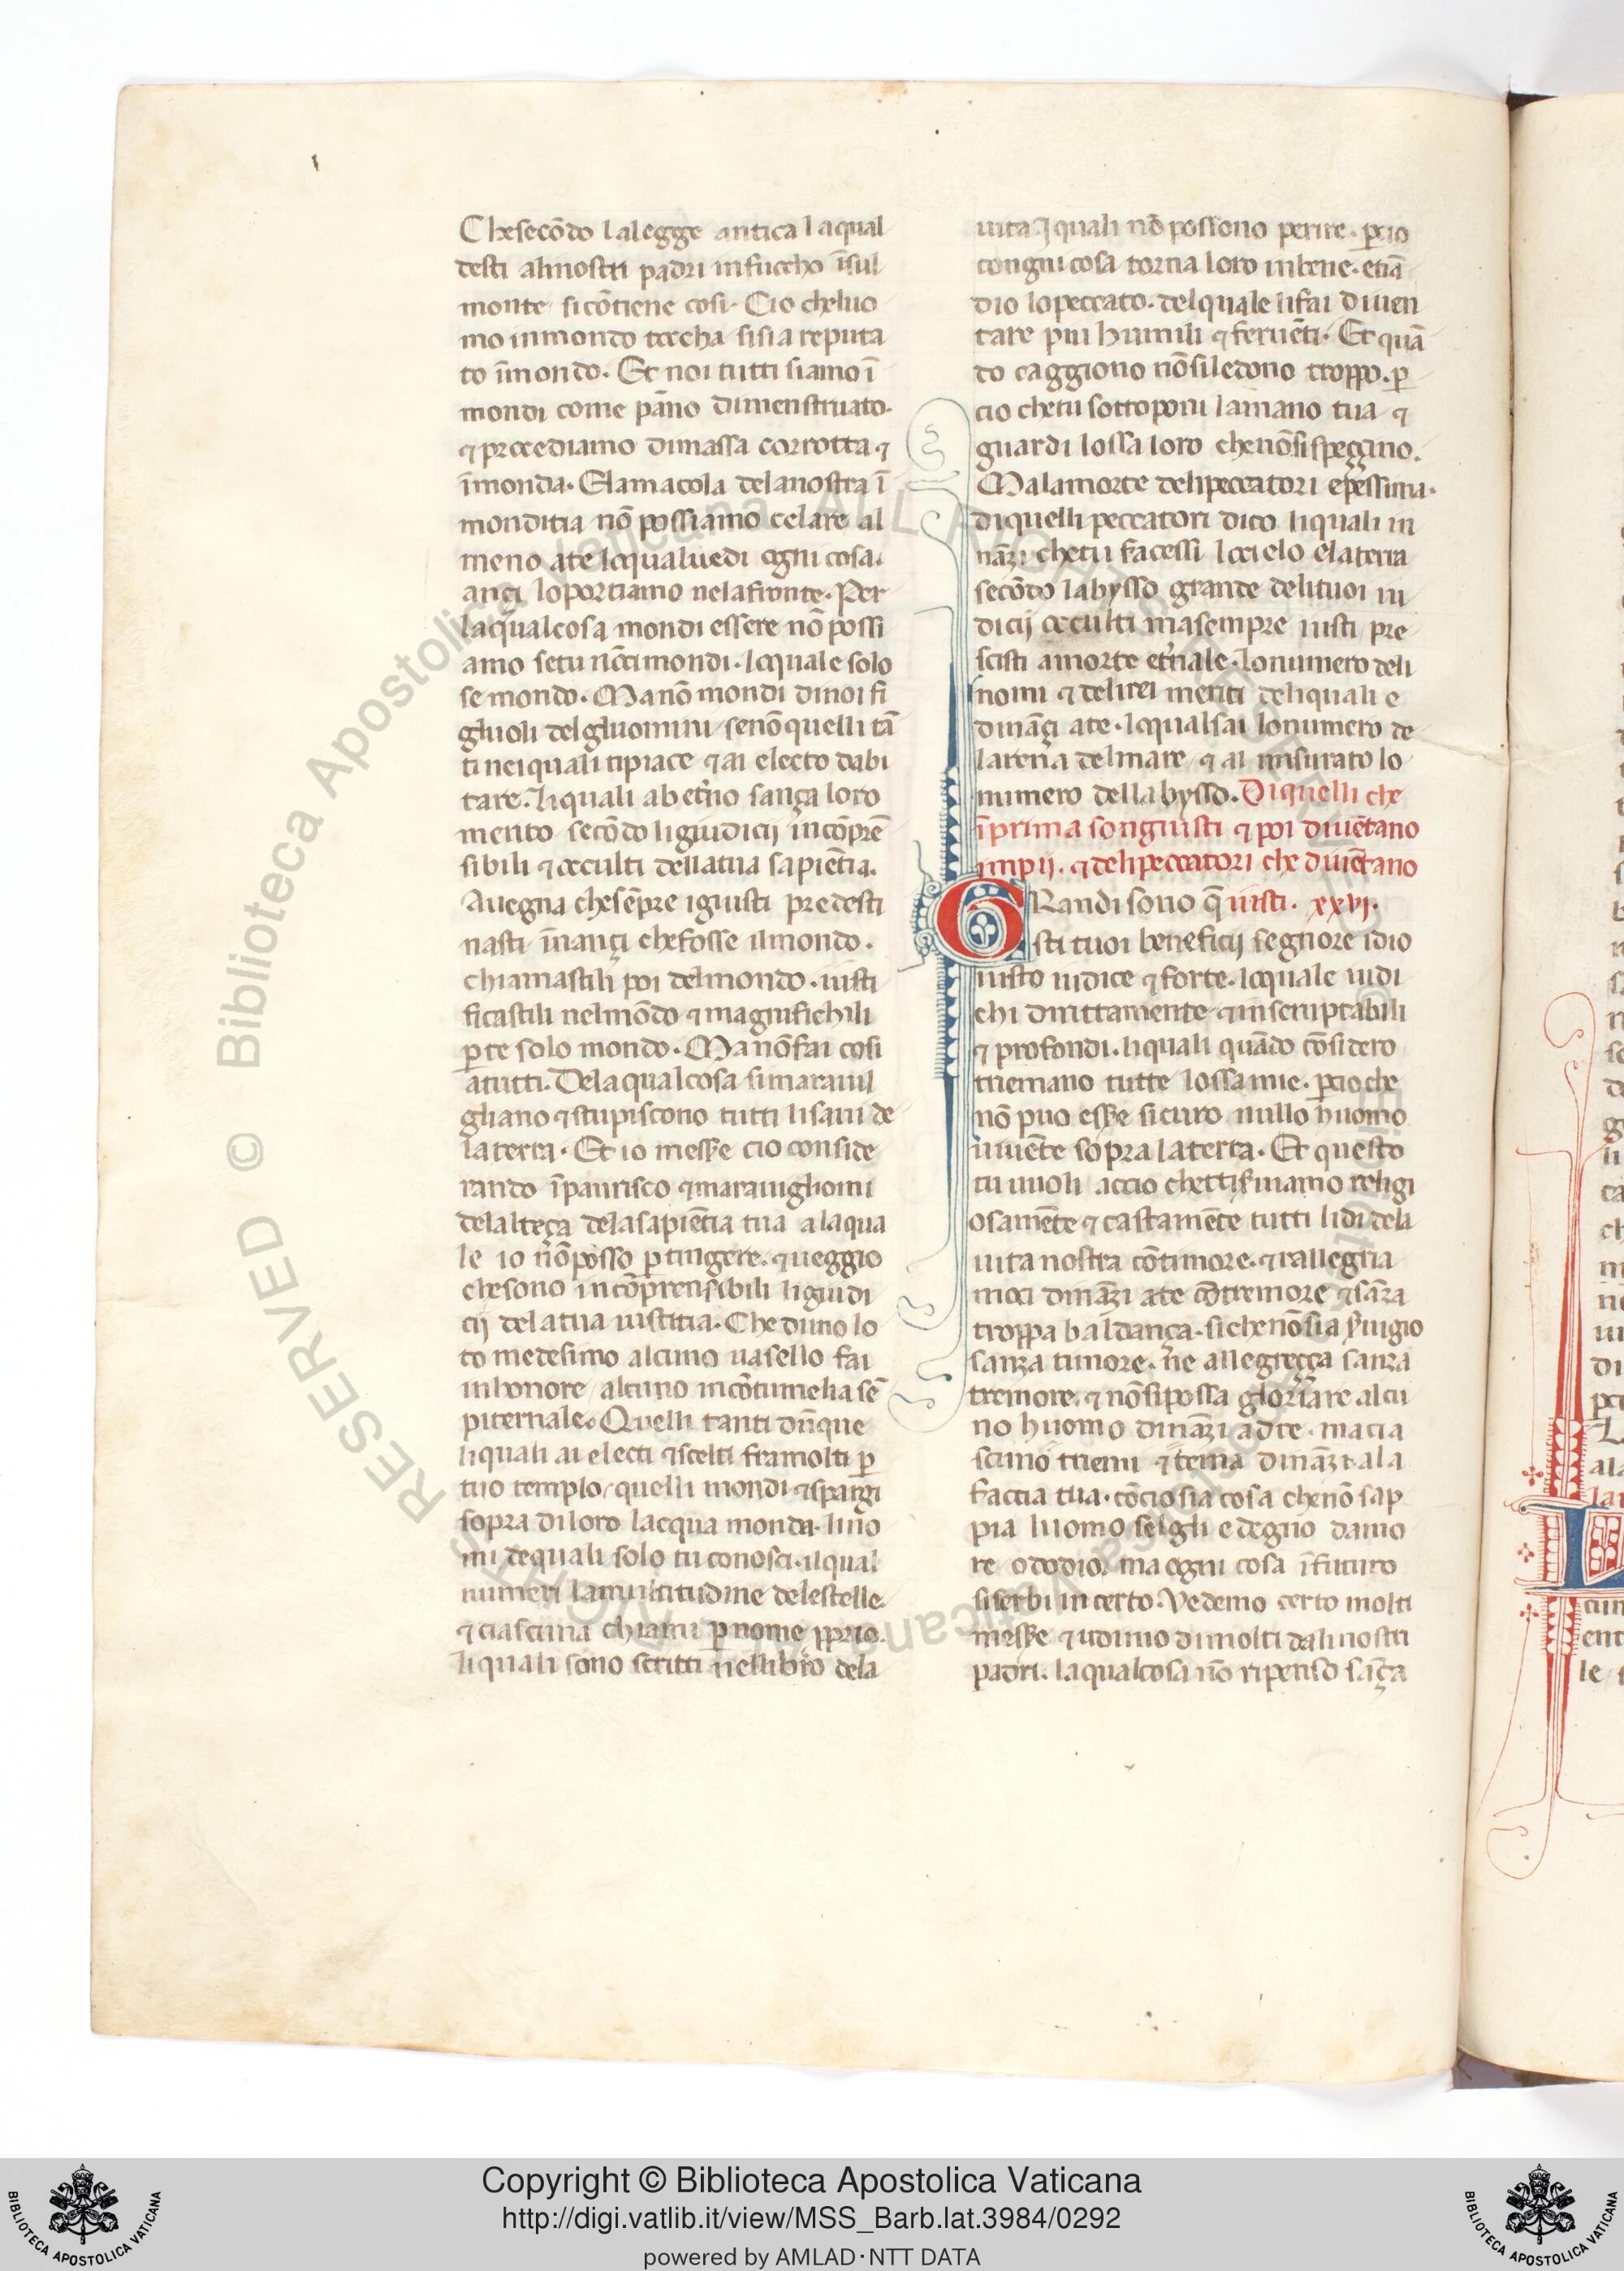 Che secōdo la legge antica laqual
desti alinostri padri infuocho īsul
monte si cōtiene cosi. Cio che luo
mo inmondo toccha sisia reputa
to īmondo. Et noi tutti siamo ī
mondi come pāno dimenstruato.
⁊ procediamo dimassa corrotta ⁊
īmonda. Elamacola delanostra ī
monditia nō possiamo celare al
meno ate loqual uedi ogni cosa.
ançi loportiamo nelafronte. Per
laqualcosa mondi essere nō possi
amo setu nōci mondi. loquale solo
se mondo. Ma nō mondi dinoi fi
gliuoli degliuomini senō quelli tā
ti neiquali tipiace ⁊ ai electo dabi
tare. Liquali ab et̄no sança loro
merito secōdo ligiudicij incōprē
sibili ⁊ occulti dellatua sapiētia.
Auegna che sēpre igiusti predesti
nasti īnançi chefosse ilmondo.
chiamastili poi delmondo. iusti
ficastili nelmōdo ⁊ magnifichili
ꝑ te solo mondo. Ma nō fai cosi
atutti. Dela qualcosa simarauil
gliano ⁊ stupiscono tutti lisaui de
laterra. Et io messe cio conside
rando īpaurisco ⁊ marauigliomi
delalteça delasapiētia tua ala qua
le io nō posso ꝑtingere. ⁊ ueggio
chesono incōprensibili ligiudi
cij delatua iustitia. Che duno lo
to medesimo alcuno uasello fai
inhonore alcuno incōtumelia sē
piternale. Quelli tanti dūque
liquali ai electi ⁊ scelti framolti ꝑ
tuo templo quelli mondi ⁊ spargi
sopra diloro lacqua monda. li no
mi dequali solo tu conosci. ilqual
numeri lamultitudine delestelle
⁊ ciascuna chiami ꝑ nome ꝓprio.
liquali sono scritti nellibro dela
uita. I quali nō possono perire. ꝑcio
congni cosa torna loro inbene. etiā
dio lopeccato. delquale lifai diuen
tare piu humili ⁊ feruēti. Et quā
do caggiono nō siledono troppo. ꝑ
cio chetu sottoponi lamano tua ⁊
guardi lossa loro chenōsispeççino.
Malamorte delipeccatori e pessima.
diquelli peccatori dico liquali in
nāzi chetu facessi locielo elaterra
secōdo labysso grande delituoi iu
dicij occulti masempre iusti pre
scisti amorte et̄nale. lonumero deli
nomi ⁊ delirei meriti deliquali e
dināçi ate. loqual sai lonumero de
larena delmare ⁊ ai misurato lo
numero dellabysso. Di quelli che
īprima song iusti ⁊ poi diuētano
impij. ⁊ delipeccatori che diuētano
GRandi sono q̄ iusti. xxvj.
sti tuoi beneficij segnore idio
iusto iudice ⁊ forte. loquale iudi
chi dirittamente ⁊ inscruptabili
⁊ profondi. liquali quādo cōsidero
triemano tutte lossa mie. ꝑcio che
nō puo esse sicuro nullo huomo
uiuēte sopra laterra. Et questo
tu uuoli accio chetti ſuiamo religi
osamēte ⁊ castamēte tutti lidi dela
uita nostra cōtimore. ⁊ rallegria
moci dināzi ate cōtremore ⁊ sāza
troppa baldança. sichenōsia ẜuigio
sanza timore. ne allegreçça sanza
tremore. ⁊ nōsipossa gloriare alcu
no huomo dināzi adte. ma cia
scuno triemi ⁊ tema dināzi ala
faccia tua. cōcio sia cosa che nō sap
pia luomo selgli e degno damo
re o dodio. ma ogni cosa ī futuro
siserbi incerto. Vedemo certo molti
messe ⁊ udimo dimolti dalinostri
padri. laqualcosa nō ripenso sāça
Copyright © Biblioteca Apostolica Vaticana
http://digi.vatlib.it/view/MSS_Barb.lat.3984/0292
powered by AMLAD·NTT DATA